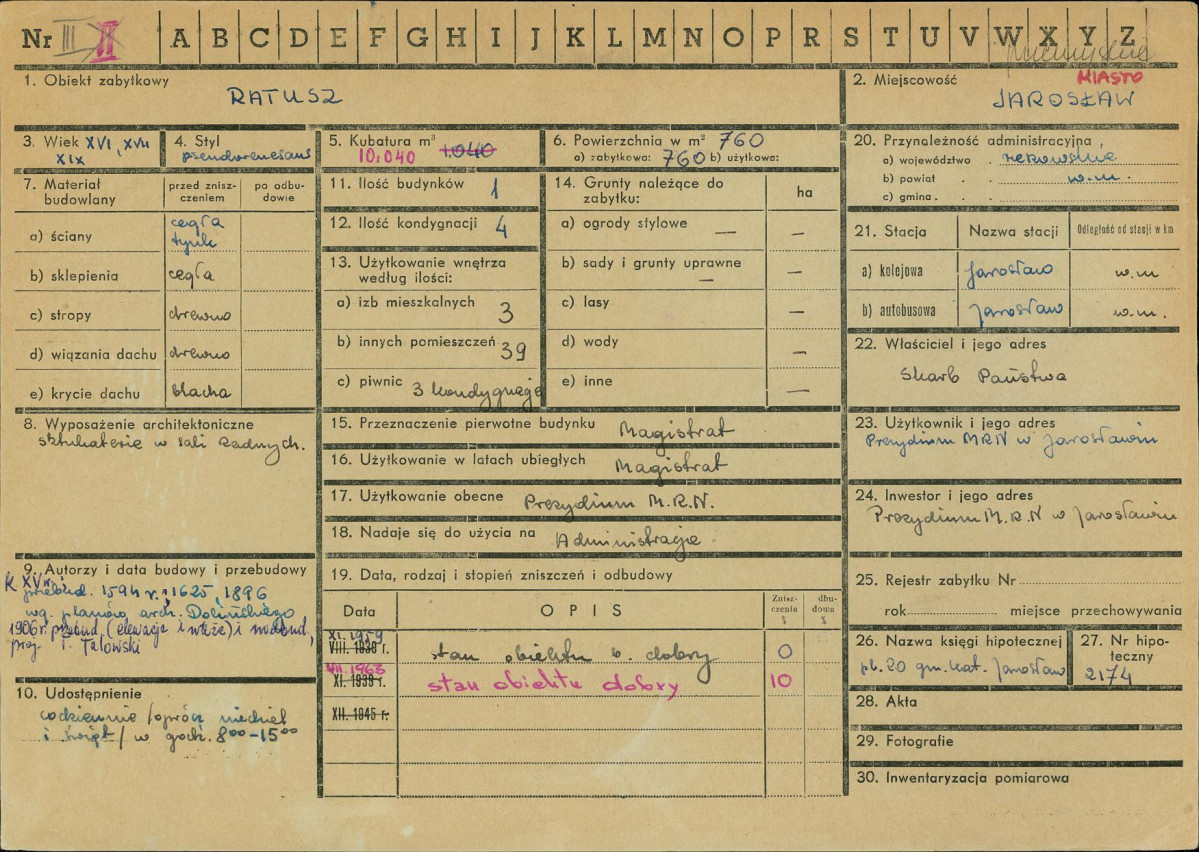 Nr III II A B C D E F G H I J K L M N O P R S T U V W X Y Z
1. Obiekt zabytkowy
RATUSZ
2. Miejscowość
MIASTO
JAROSŁAW
3. Wiek XVI, XVII
XIX
4. Styl
pseudorenesans
5. Kubatura m³ 1.040
10.040
6. Powierzchnia w m² 760
a) zabytkowa: 760 b) użytkowa:
20. Przynależność administracyjna
a) województwo . rzeszowskie
b) powiat . . w.m.
c) gmina . .
7. Materiał budowlany
przed zniszczeniem
po odbudowie
a) ściany
cegła
tynk
b) sklepienia cegła
c) stropy drewno
d) wiązania dachu drewno
e) krycie dachu blacha
11. Ilość budynków 1
12. Ilość kondygnacji 4
13. Użytkowanie wnętrza
według ilości:
a) izb mieszkalnych 3
b) innych pomieszczeń 39
c) piwnic 3 kondygnacje
14. Grunty należące do
zabytku:
ha
a) ogrody stylowe — —
b) sady i grunty uprawne
— —
c) lasy —
d) wody —
e) inne —
21. Stacja Nazwa stacji Odległość od stacji w km
a) kolejowa Jarosław w.m
b) autobusowa Jarosław w.m.
22. Właściciel i jego adres
Skarb Państwa
8. Wyposażenie architektoniczne
sztukaterie w sali Radnych.
15. Przeznaczenie pierwotne budynku Magistrat
16. Użytkowanie w latach ubiegłych Magistrat
17. Użytkowanie obecne Prezydium M.R.N.
18. Nadaje się do użycia na Administracje.
23. Użytkownik i jego adres
Prezydium MRN w Jarosławiu
24. Inwestor i jego adres
Prezydium M.R.N w Jarosławiu
9. Autorzy i data budowy i przebudowy
K XV w.
przebud. 1594 r., 1625, 1896
wg. planów arch. Dolińskiego
1906 r. przebud. (elewacje i wieże) i nadbud,
proj. T. Talowski
19. Data, rodzaj i stopień zniszczeń i odbudowy
Data OPIS Zniszczenia % dbudowa %
XI. 1959
VIII. 1939 r. stan obiektu b. dobry 0
VII. 1963
XI. 1939 r. stan obiektu dobry 10
XII. 1945 r.
25. Rejestr zabytku Nr
rok miejsce przechowywania
26. Nazwa księgi hipotecznej
pb. 20 gm. kat. Jarosław
27. Nr hipoteczny
2174
10. Udostępnienie
codziennie /oprócz niedziel
i świąt/ w godz. 8⁰⁰-15⁰⁰
28. Akta
29. Fotografie
30. Inwentaryzacja pomiarowa